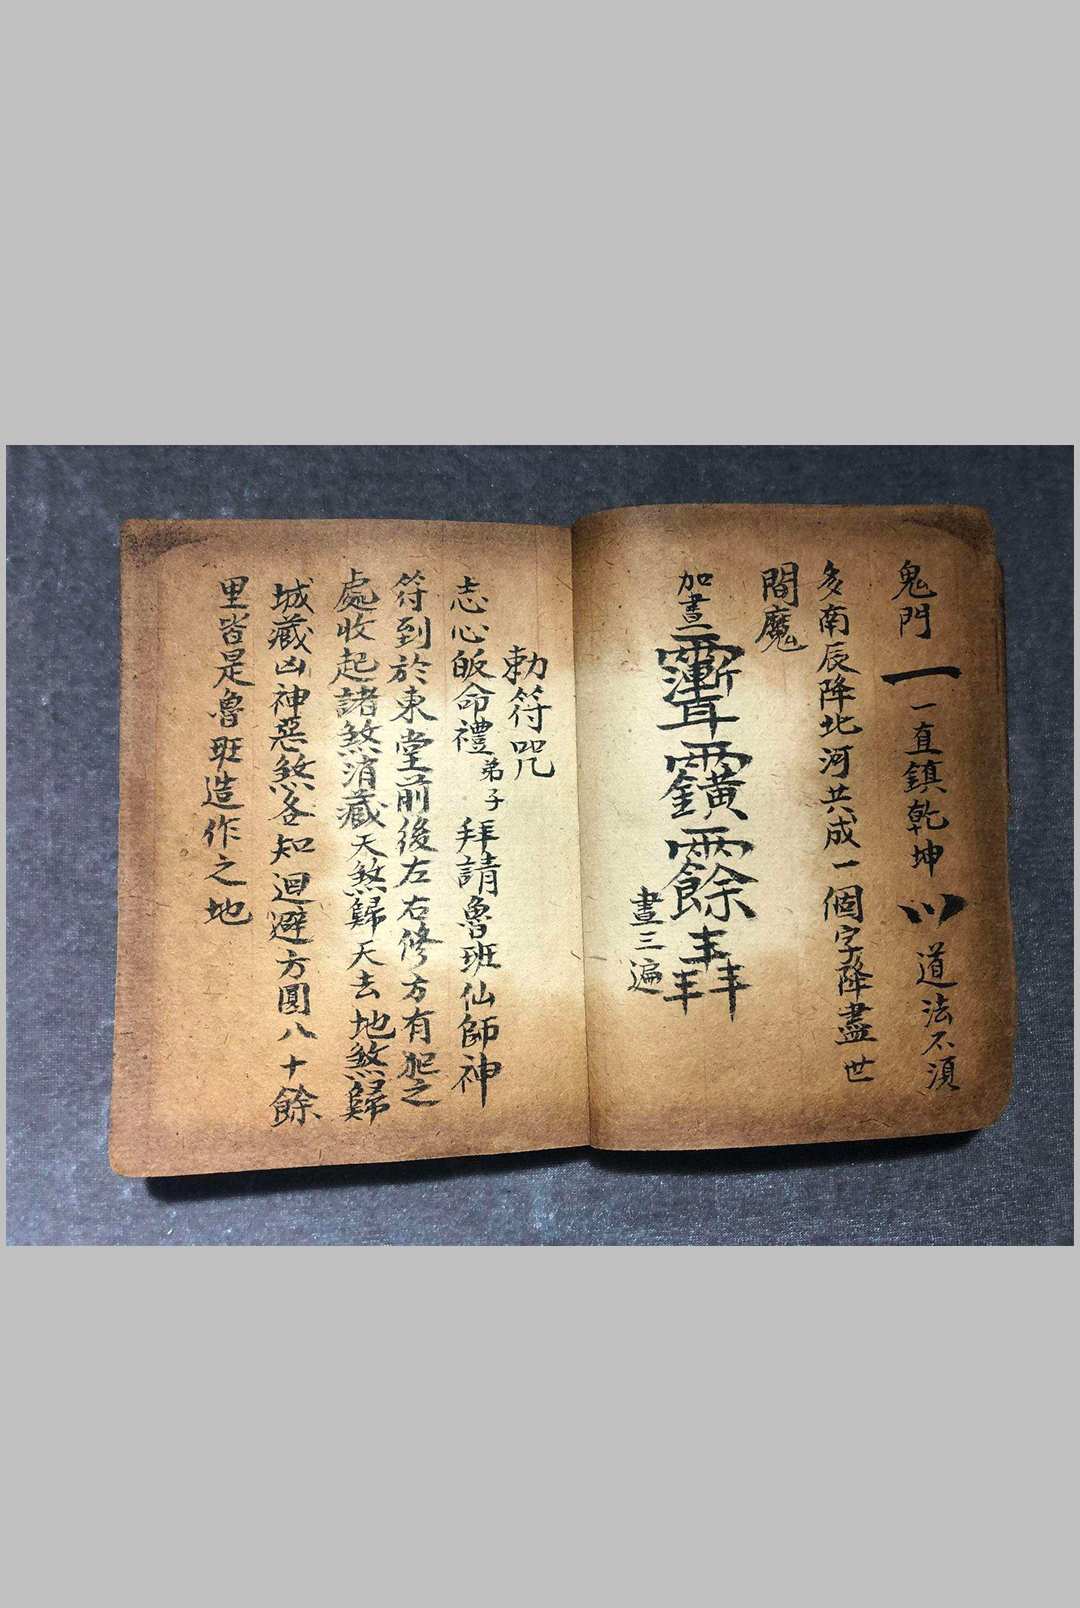 鬼門 一直鎮乾坤 道法不須
多南辰降北河共成一個字降盡世
閻魔
加畫二
畫三遍
勅符咒
志心皈命禮弟子 拜請魯班仙師神
符到於東堂前後左右修方有犯之
處收起諸煞消藏天煞歸天去地煞歸
城藏凶神惡煞各知迴避方圓八十餘
里皆是魯班造作之地